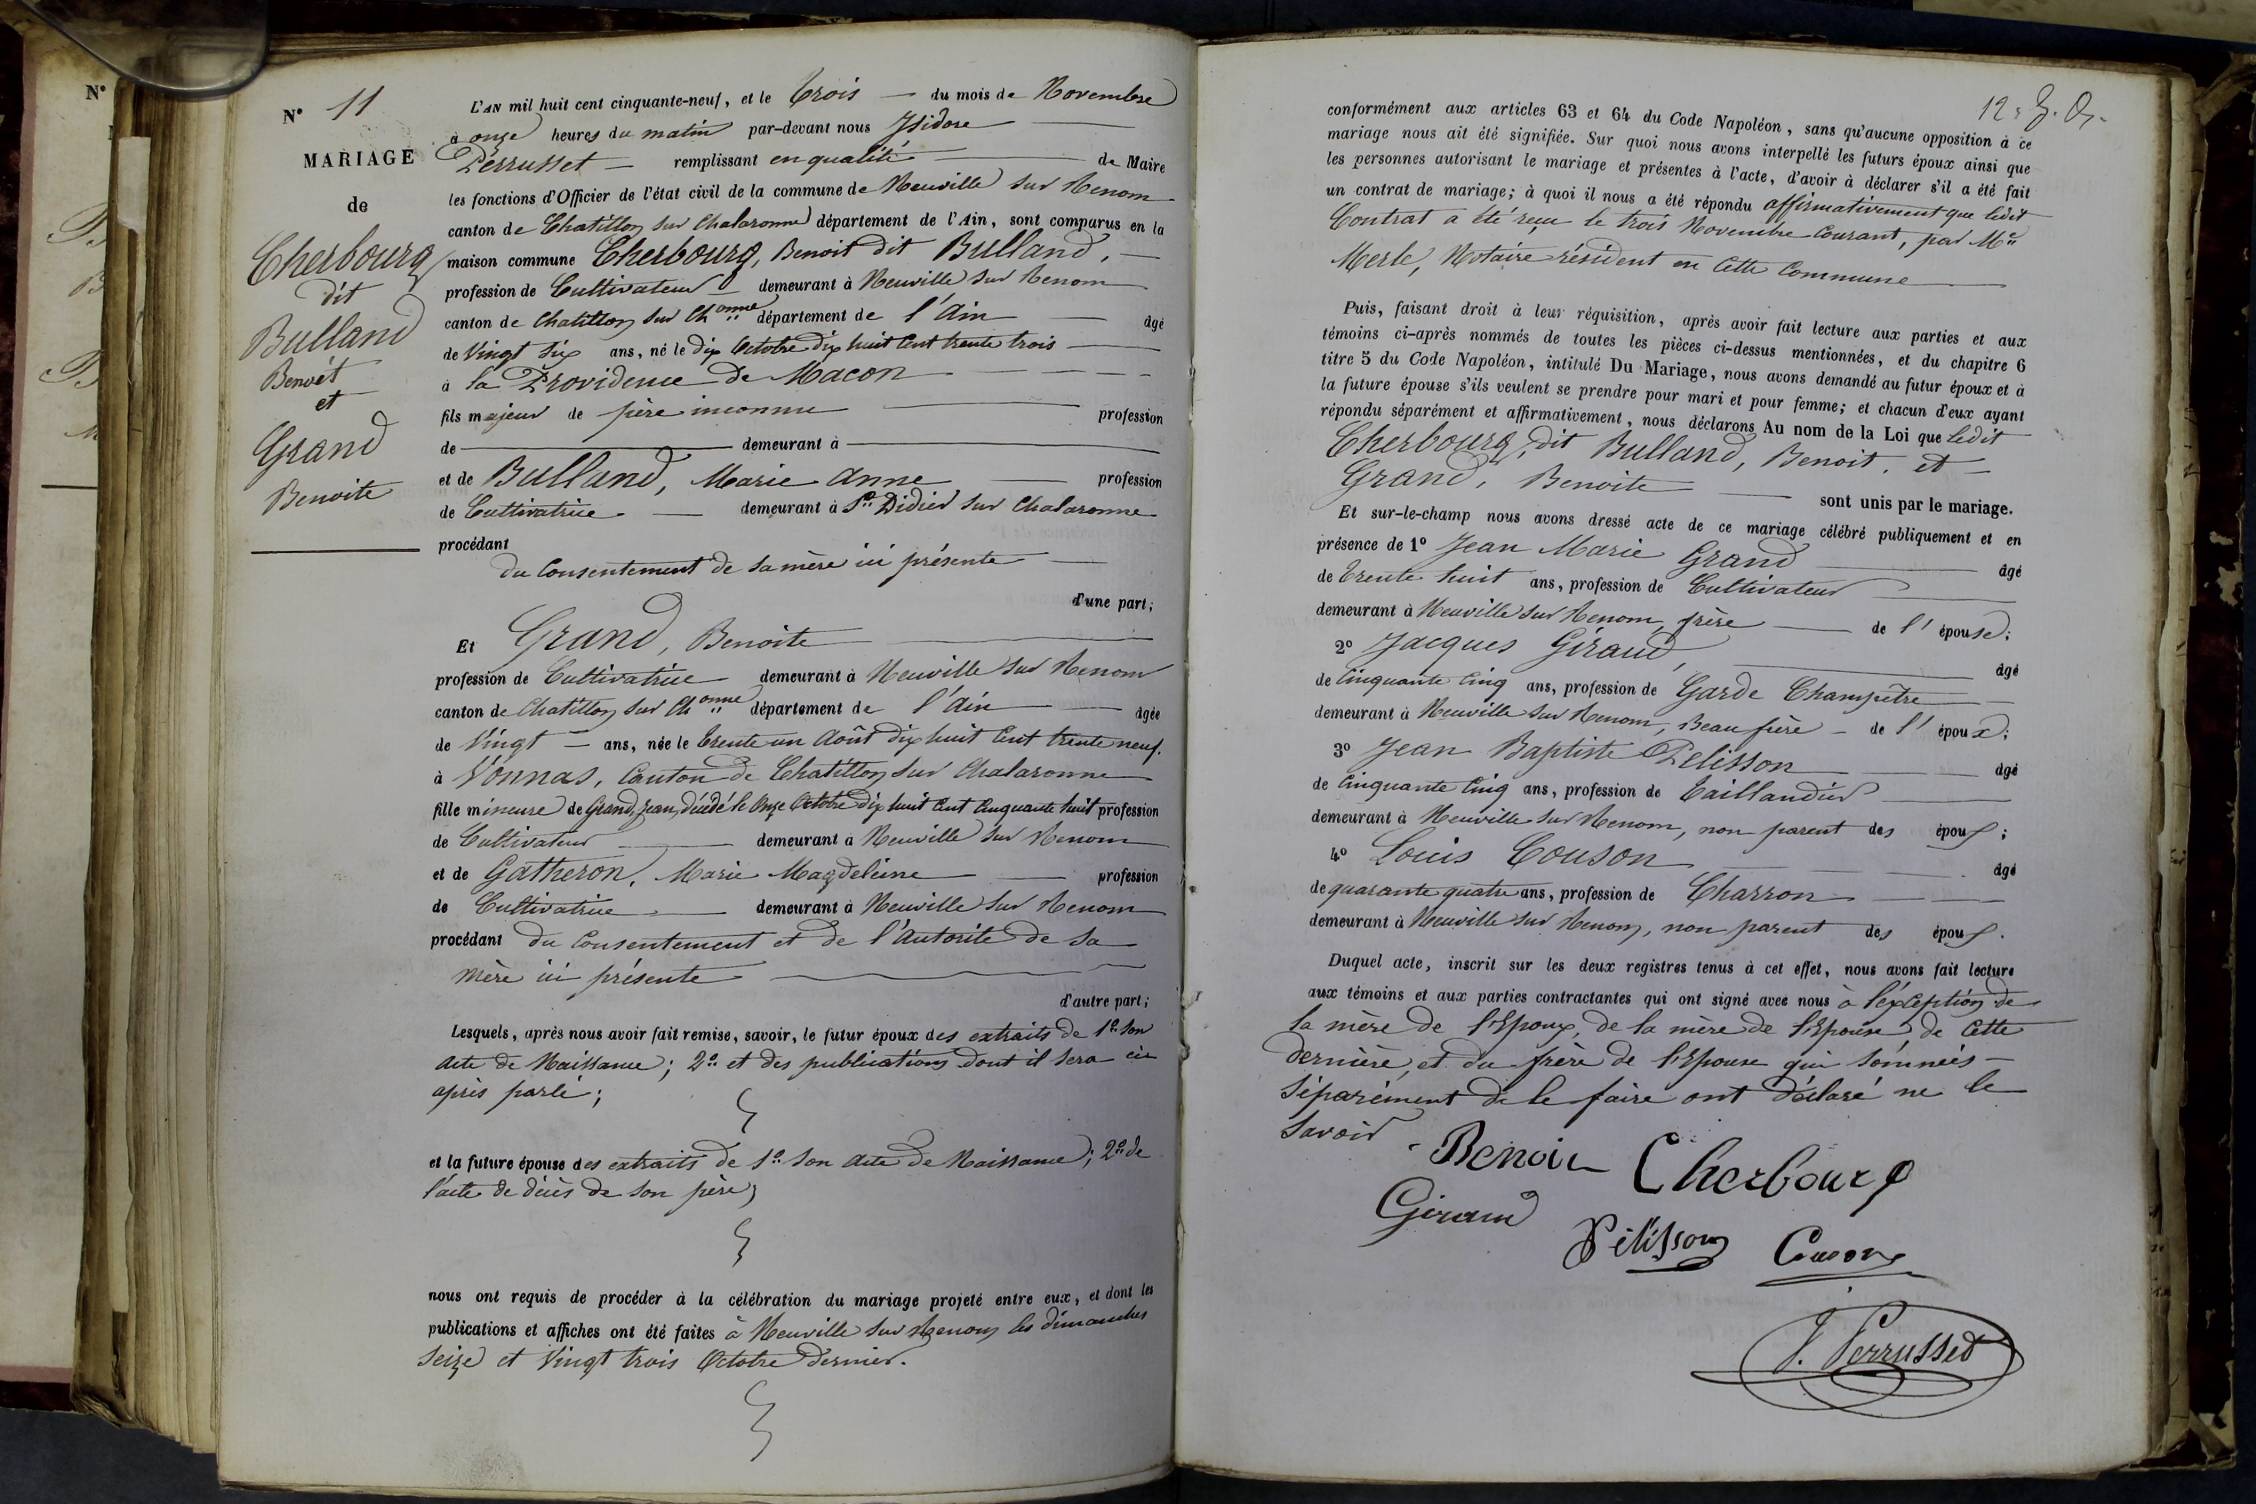 N°
N° 11
MARIAGE
de
Cherbourg
dit
Bulland
Benoît
et
Grand
Benoite
L'AN mil huit cent cinquante-neuf, et le trois du mois de Novembre
à onze heures du matin par-devant nous Isidore
Perrusset remplissant en qualité de Maire
les fonctions d'Officier de l'état civil de la commune de Neuville sur Renom
canton de Chatillon sur Chalaronne département de l'Ain, sont comparus en la
maison commune Cherbourg, Benoit dit Bulland,
profession de Cultivateur demeurant à Neuville sur Renom
canton de Chatillon sur Ch^onne département de l'Ain âgé
de Vingt Six ans, né le dix Octobre dix huit Cent trente trois
à la Providence de Macon
fils majeur de père inconnu profession
de demeurant à
et de Bulland, Marie Anne profession
de Cultivatrice demeurant à St Didier sur Chalaronne
procédant
du Consentement de sa mère ici présente
d'une part;
Et Grand, Benoite
profession de Cultivatrice demeurant à Neuville sur Renom
canton de Chatillon sur Ch^onne département de l'Ain âgée
de Vingt ans, née le trente un Août dix huit Cent trente neuf.
à Vonnas, Canton de Chatillon sur Chalaronne
fille mineure de Grand, Jean, décédé le Onze Octobre dix huit Cent Cinquante huit profession
de Cultivateur demeurant à Neuville sur Renom
et de Gatheron, Marie Magdeleine profession
de Cultivatrice demeurant à Neuville sur Renom
procédant du Consentement et de l'Autorité de sa
mère ici présente
d'autre part;
Lesquels, après nous avoir fait remise, savoir, le futur époux des extraits de 1° son
acte de Naissance; 2° et des publications dont il sera ci
après parlé;
et la future épouse des extraits de 1° son acte de Naissance; 2° de
l'acte de décès de son père;
nous ont requis de procéder à la célébration du mariage projeté entre eux, et dont les
publications et affiches ont été faites à Neuville sur Renom les dimanches
Seize et Vingt trois Octobre dernier.
12
conformément aux articles 63 et 64 du Code Napoléon, sans qu'aucune opposition à ce
mariage nous ait été signifiée. Sur quoi nous avons interpellé les futurs époux ainsi que
les personnes autorisant le mariage et présentes à l'acte, d'avoir à déclarer s'il a été fait
un contrat de mariage; à quoi il nous a été répondu affirmativement que ledit
Contrat a été reçu le trois Novembre Courant, par Me
Merle, Notaire résident en Cette Commune
Puis, faisant droit à leur réquisition, après avoir fait lecture aux parties et aux
témoins ci-après nommés de toutes les pièces ci-dessus mentionnées, et du chapitre 6
titre 5 du Code Napoléon, intitulé Du Mariage, nous avons demandé au futur époux et à
la future épouse s'ils veulent se prendre pour mari et pour femme; et chacun d'eux ayant
répondu séparément et affirmativement, nous déclarons Au nom de la Loi que ledit
Cherbourg, dit Bulland, Benoit, et
Grand, Benoite sont unis par le mariage.
Et sur-le-champ nous avons dressé acte de ce mariage célébré publiquement et en
présence de 1° Jean Marie Grand âgé
de trente huit ans, profession de Cultivateur
demeurant à Neuville sur Renom, frère de l'épouse;
2° Jacques Giraud, âgé
de Cinquante Cinq ans, profession de Garde Champêtre
demeurant à Neuville sur Renom, Beau frère de l'époux;
3° Jean Baptiste Pelisson âgé
de Cinquante Cinq ans, profession de Taillandier
demeurant à Neuville sur Renom, non parent des époux;
4° Louis Couson âgé
de quarante quatre ans, profession de Charron
demeurant à Neuville sur Renom, non parent des époux.
Duquel acte, inscrit sur les deux registres tenus à cet effet, nous avons fait lecture
aux témoins et aux parties contractantes qui ont signé avec nous à l'éxception de
la mère de l'Epoux, de la mère de l'Epouse, de Cette
dernière, et du frère de l'Epouse qui sommés
séparément de le faire ont déclaré ne le
savoir
Benoit Cherbourg
Giraud
Pélisson Couson
J. Perrusset